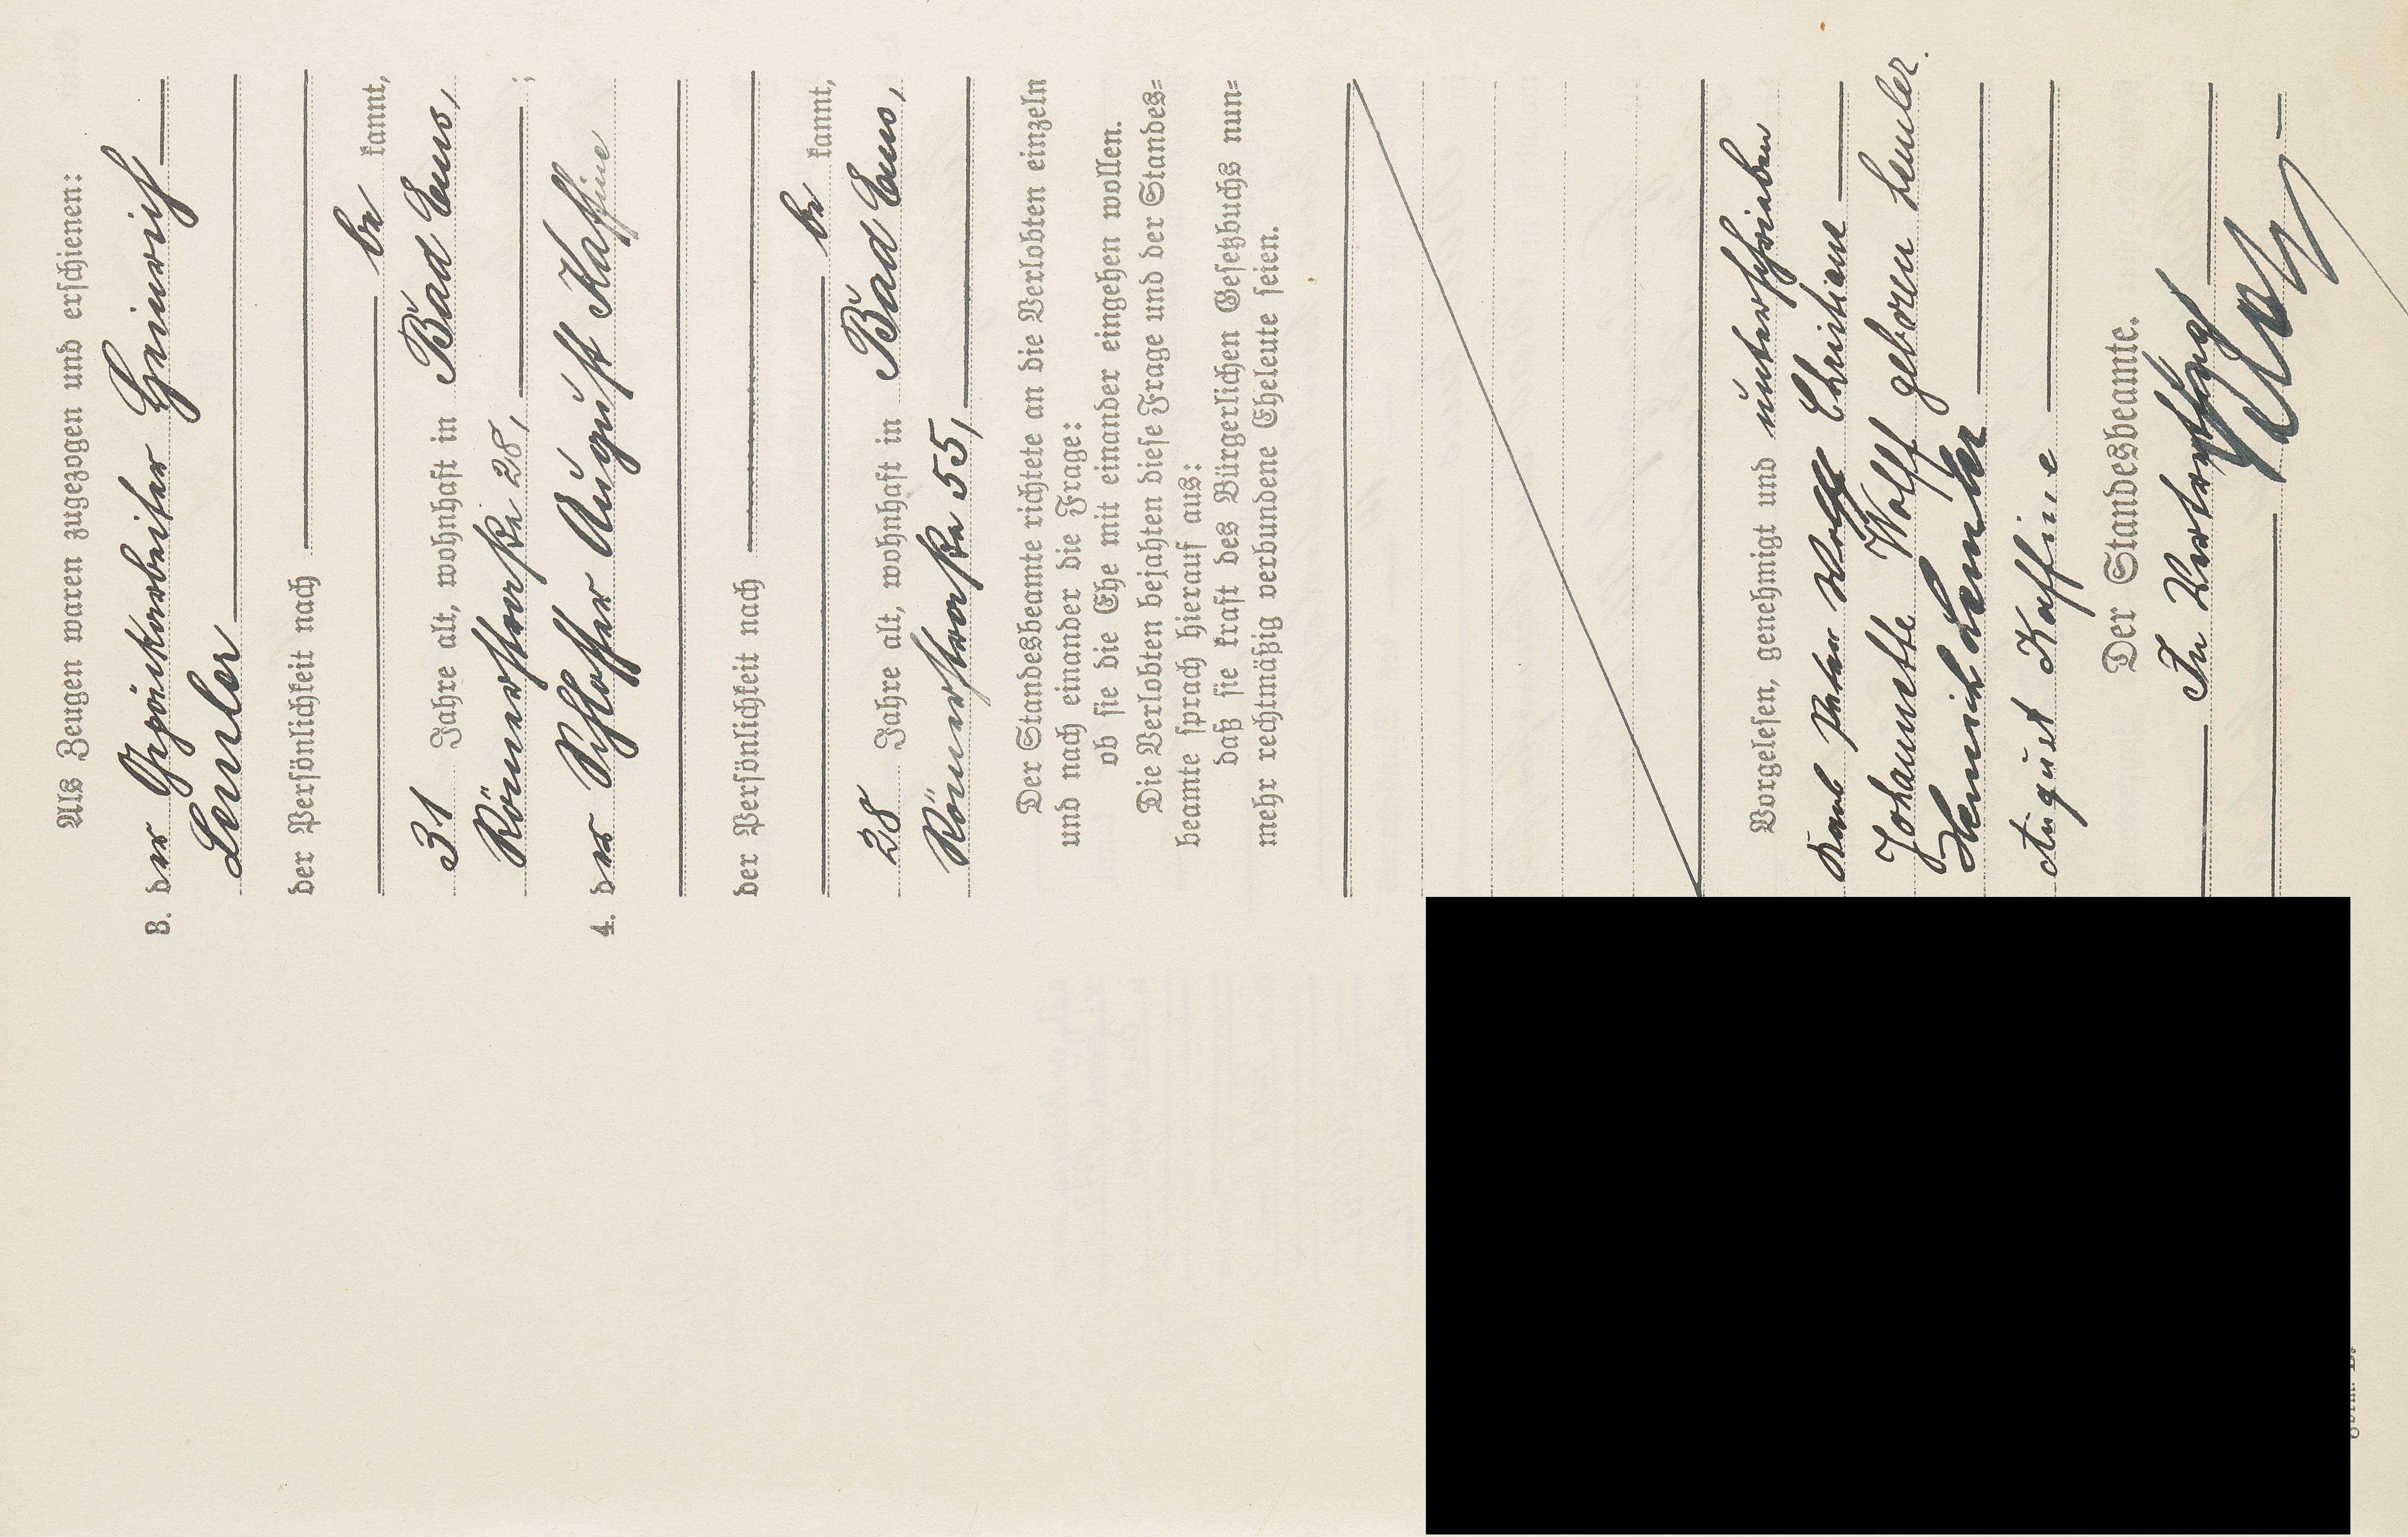 Als Zeugen waren zugezogen und erschienen:
3. der Gepäckarbeiter Heinrich
Lemler
der Persönlichkeit nach
be kannt,
31 Jahre alt, wohnhaft in Bad Ems,
Römerstraße 28, ;
4. der Schlosser August Kaffine
der Persönlichkeit nach
be kannt,
28 Jahre alt, wohnhaft in Bad Ems,
Römerstraße 55,
Der Standesbeamte richtete an die Verlobten einzeln
und nach einander die Frage:
ob sie die Ehe mit einander eingehen wollen.
Die Verlobten bejahten diese Frage und der Standes=
beamte sprach hierauf aus:
daß sie kraft des Bürgerlichen Gesetzbuchs nun=
mehr rechtmäßig verbundene Eheleute seien.
Vorgelesen, genehmigt und unterschrieben
Karl Peter Wolff Christian
Johannette Wolff geboren Lemler.
Heinrich Lemler
August Kaffine
Der Standesbeamte.
In Vertretung